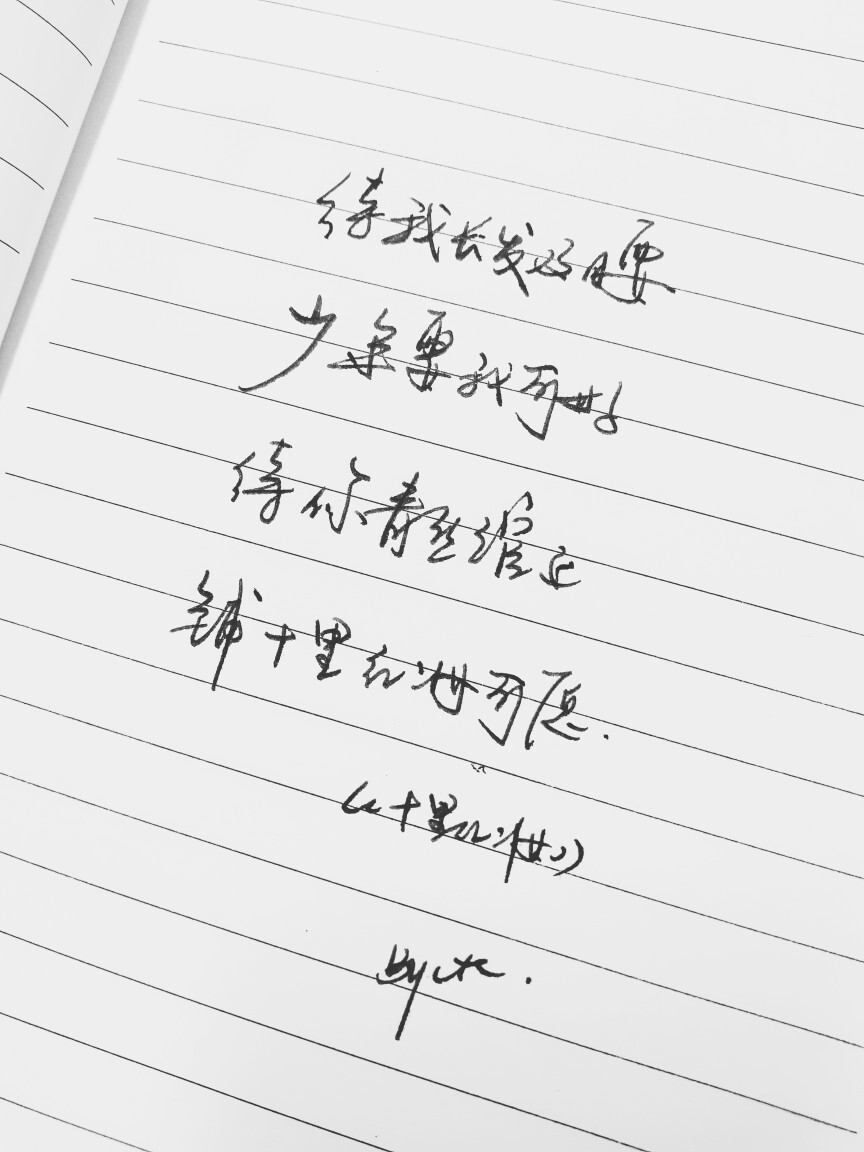 待我长发及腰
少年娶我可好
待你青丝绾正
铺十里红妆可愿.
《十里红妆》
By